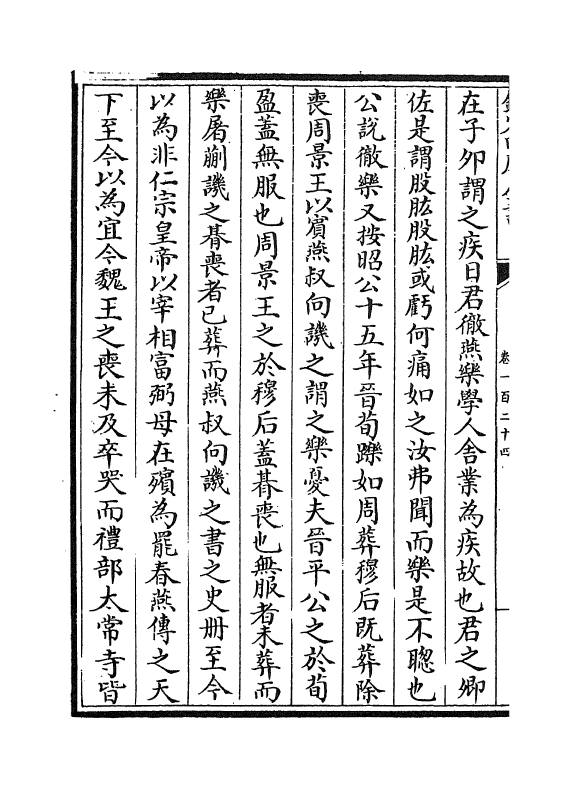 卷一百二十四
在子卯謂之疾日君徹燕樂學人舍業為疾故也君之卿
佐是謂股肱股肱或虧何痛如之汝弗聞而樂是不聰也
公說徹樂又按昭公十五年晉荀躒如周葬穆后既葬除
喪周景王以賓燕叔向譏之謂之樂憂夫晉平公之於荀
盈蓋無服也周景王之於穆后蓋朞喪也無服者未葬而
樂屠蒯譏之朞喪者已葬而燕叔向譏之書之史册至今
以為非仁宗皇帝以宰相富弼母在殯為罷春燕傳之天
下至今以為宜今魏王之喪未及卒哭而禮部太常寺皆